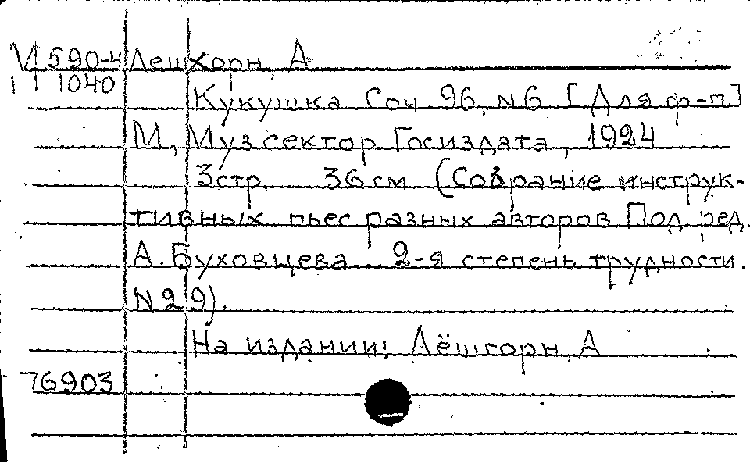 М 590-4 Лешхорн, А
11 1040
Кукушка Соч 96, №6 [Для ф-п]
М, Муз сектор Госиздата, 1924
3стр 36см (Собрание инструк-
тивных пьес разных авторов Под ред.
А. Буховцева. 2-я степень трудности.
№29).
На издании: Лёшгорн, А
76903